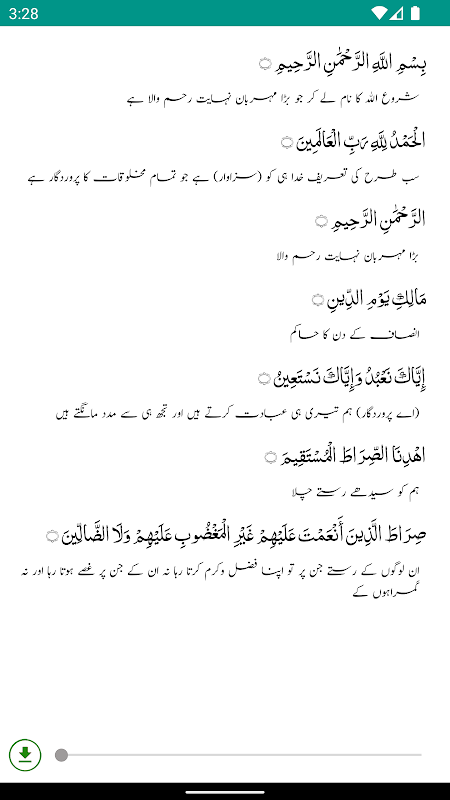 3:28
بِسْمِ اللَّهِ الرَّحْمَٰنِ الرَّحِيمِ ۝
شروع الله کا نام لے کر جو بڑا مہربان نہایت رحم والا ہے
الْحَمْدُ لِلَّهِ رَبِّ الْعَالَمِينَ ۝
سب طرح کی تعریف خدا ہی کو (سزاوار) ہے جو تمام مخلوقات کا پروردگار ہے
الرَّحْمَٰنِ الرَّحِيمِ ۝
بڑا مہربان نہایت رحم والا
مَالِكِ يَوْمِ الدِّينِ ۝
انصاف کے دن کا حاکم
إِيَّاكَ نَعْبُدُ وَإِيَّاكَ نَسْتَعِينُ ۝
(اے پروردگار) ہم تیری ہی عبادت کرتے ہیں اور تجھ ہی سے مدد مانگتے ہیں
اهْدِنَا الصِّرَاطَ الْمُسْتَقِيمَ ۝
ہم کو سیدھے رستے چلا
صِرَاطَ الَّذِينَ أَنْعَمْتَ عَلَيْهِمْ غَيْرِ الْمَغْضُوبِ عَلَيْهِمْ وَلَا الضَّالِّينَ ۝
ان لوگوں کے رستے جن پر تو اپنا فضل وکرم کرتا رہا نہ ان کے جن پر غصے ہوتا رہا اور نہ
گمراہوں کے